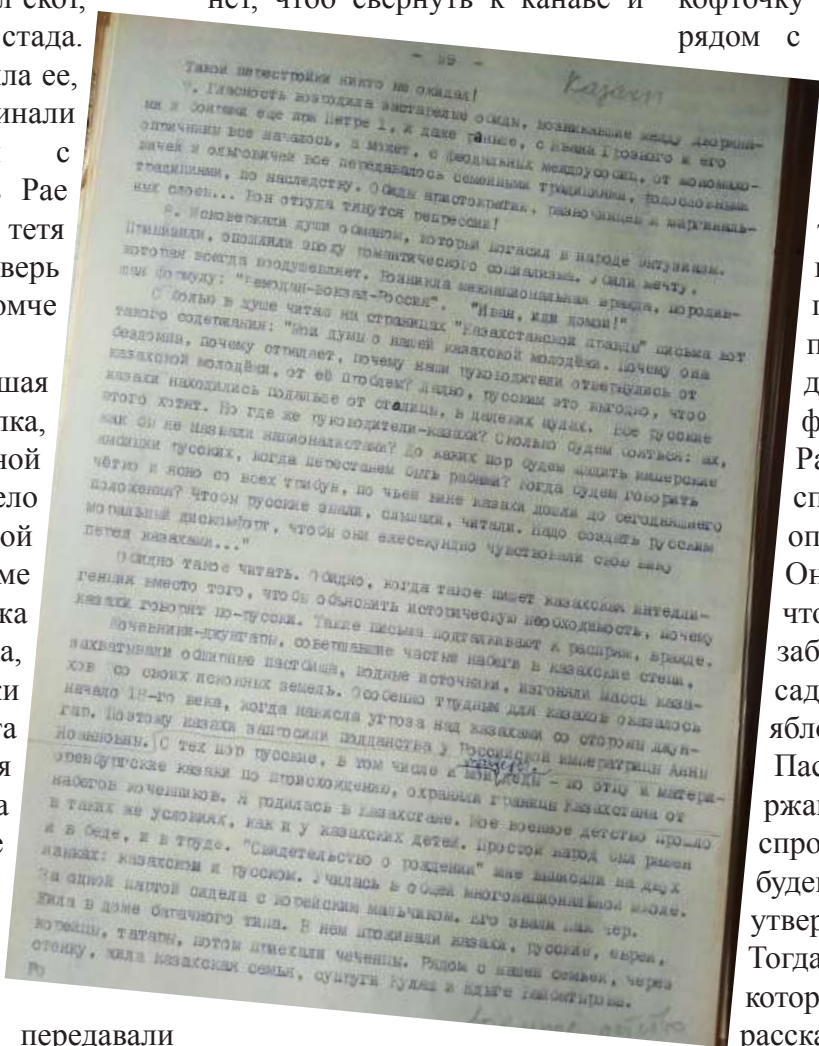 скот,
стада.
ла ее,
инали
с
Рае
тетя
верь
омче
шая
лка,
ной
ело
ой
ме
ка
а,
ки
та
я
а
е
передавали
нет, чтоб свернуть к канаве и
- 99 -
Казахи
Такой перестройки никто не ожидал!
7. Гласность возродила застарелые обиды, возникавшие между дворяна-
ми и боярами еще при Петре I, и даже раньше, с Ивана Грозного и его
опричнины все началось, а может, с феодальных междоусобиц, от мономахо-
вичей и ольговичей все передавалось семейными традициями, родословными
традициями, по наследству. Обиды аристократии, разночинцев и маргиналь-
ных слоев... Вон откуда тянутся репрессии!
8. Исковеркали души обманом, который погасил в народе энтузиазм.
Принизили, опошлили эпоху романтического социализма. Убили мечту,
которая всегда воодушевляет. Возникла межнациональная вражда, породив-
шая формулу: "Чемодан-вокзал-Россия". "Иван, иди домой!"
С болью в душе читаю на страницах "Казахстанской правды" письма вот
такого содержания: "Мои думы о нашей казахской молодёжи. Почему она
бездомна, почему отрицает, почему наши руководители отвернулись от
казахской молодёжи, от её проблем? Ладно, русским это выгодно, чтоб
казахи находились подальше от столицы, в далеких аулах. Все русские
этого хотят. Но где же руководители-казахи? Сколько будем бояться: ах,
как бы не назвали националистами? До каких пор будем щадить имперские
амбиции русских, когда перестанем быть рабами? Когда будем говорить
чётко и ясно со всех трибун, по чьей вине казахи дошли до сегодняшнего
положения? Чтобы русские знали, слышали, читали. Надо создать русским
моральный дискомфорт, чтобы они ежесекундно чувствовали свою вину
перед казахами..."
Обидно такое читать. Обидно, когда такое пишет казахская интелли-
генция вместо того, чтобы объяснить историческую необходимость, почему
казахи говорят по-русски. Такие письма подталкивают к распрям, вражде.
Кочевники-джунгары, совершавшие частые набеги в казахские степи,
захватывали обширные пастбища, водные источники, изгоняли массы каза-
хов со своих исконных земель. Особенно трудным для казахов оказалось
начало 18-го века, когда нависла угроза над казахами со стороны джун-
гар. Поэтому казахи запросили подданства у Российской императрицы Анны
Иоанновны. С тех пор русские, в том числе и мои деды - по отцу и матери-
оренбургские казаки по происхождению, охраняли границы Казахстана от
набегов кочевников. Я родилась в Казахстане. Мое военное детство прошло
в таких же условиях, как и у казахских детей. Простой народ был равен
и в беде, и в труде. "Свидетельство о рождении" мне выписали на двух
языках: казахском и русском. Училась в общей многонациональной школе.
За одной партой сидела с корейским мальчиком. Его звали Пак Чер.
Жила в доме барачного типа. В нем проживали казахи, русские, евреи,
корейцы, татары, потом приехали чеченцы. Рядом с нашей семьей, через
стенку, жила казахская семья, супруги
военное детство
кофточку
рядом с
Ра
сп
оп
Он
что
заб
сад
ябло
Пас
ржав
спро
буде
утвер
Тогда
котор
расска